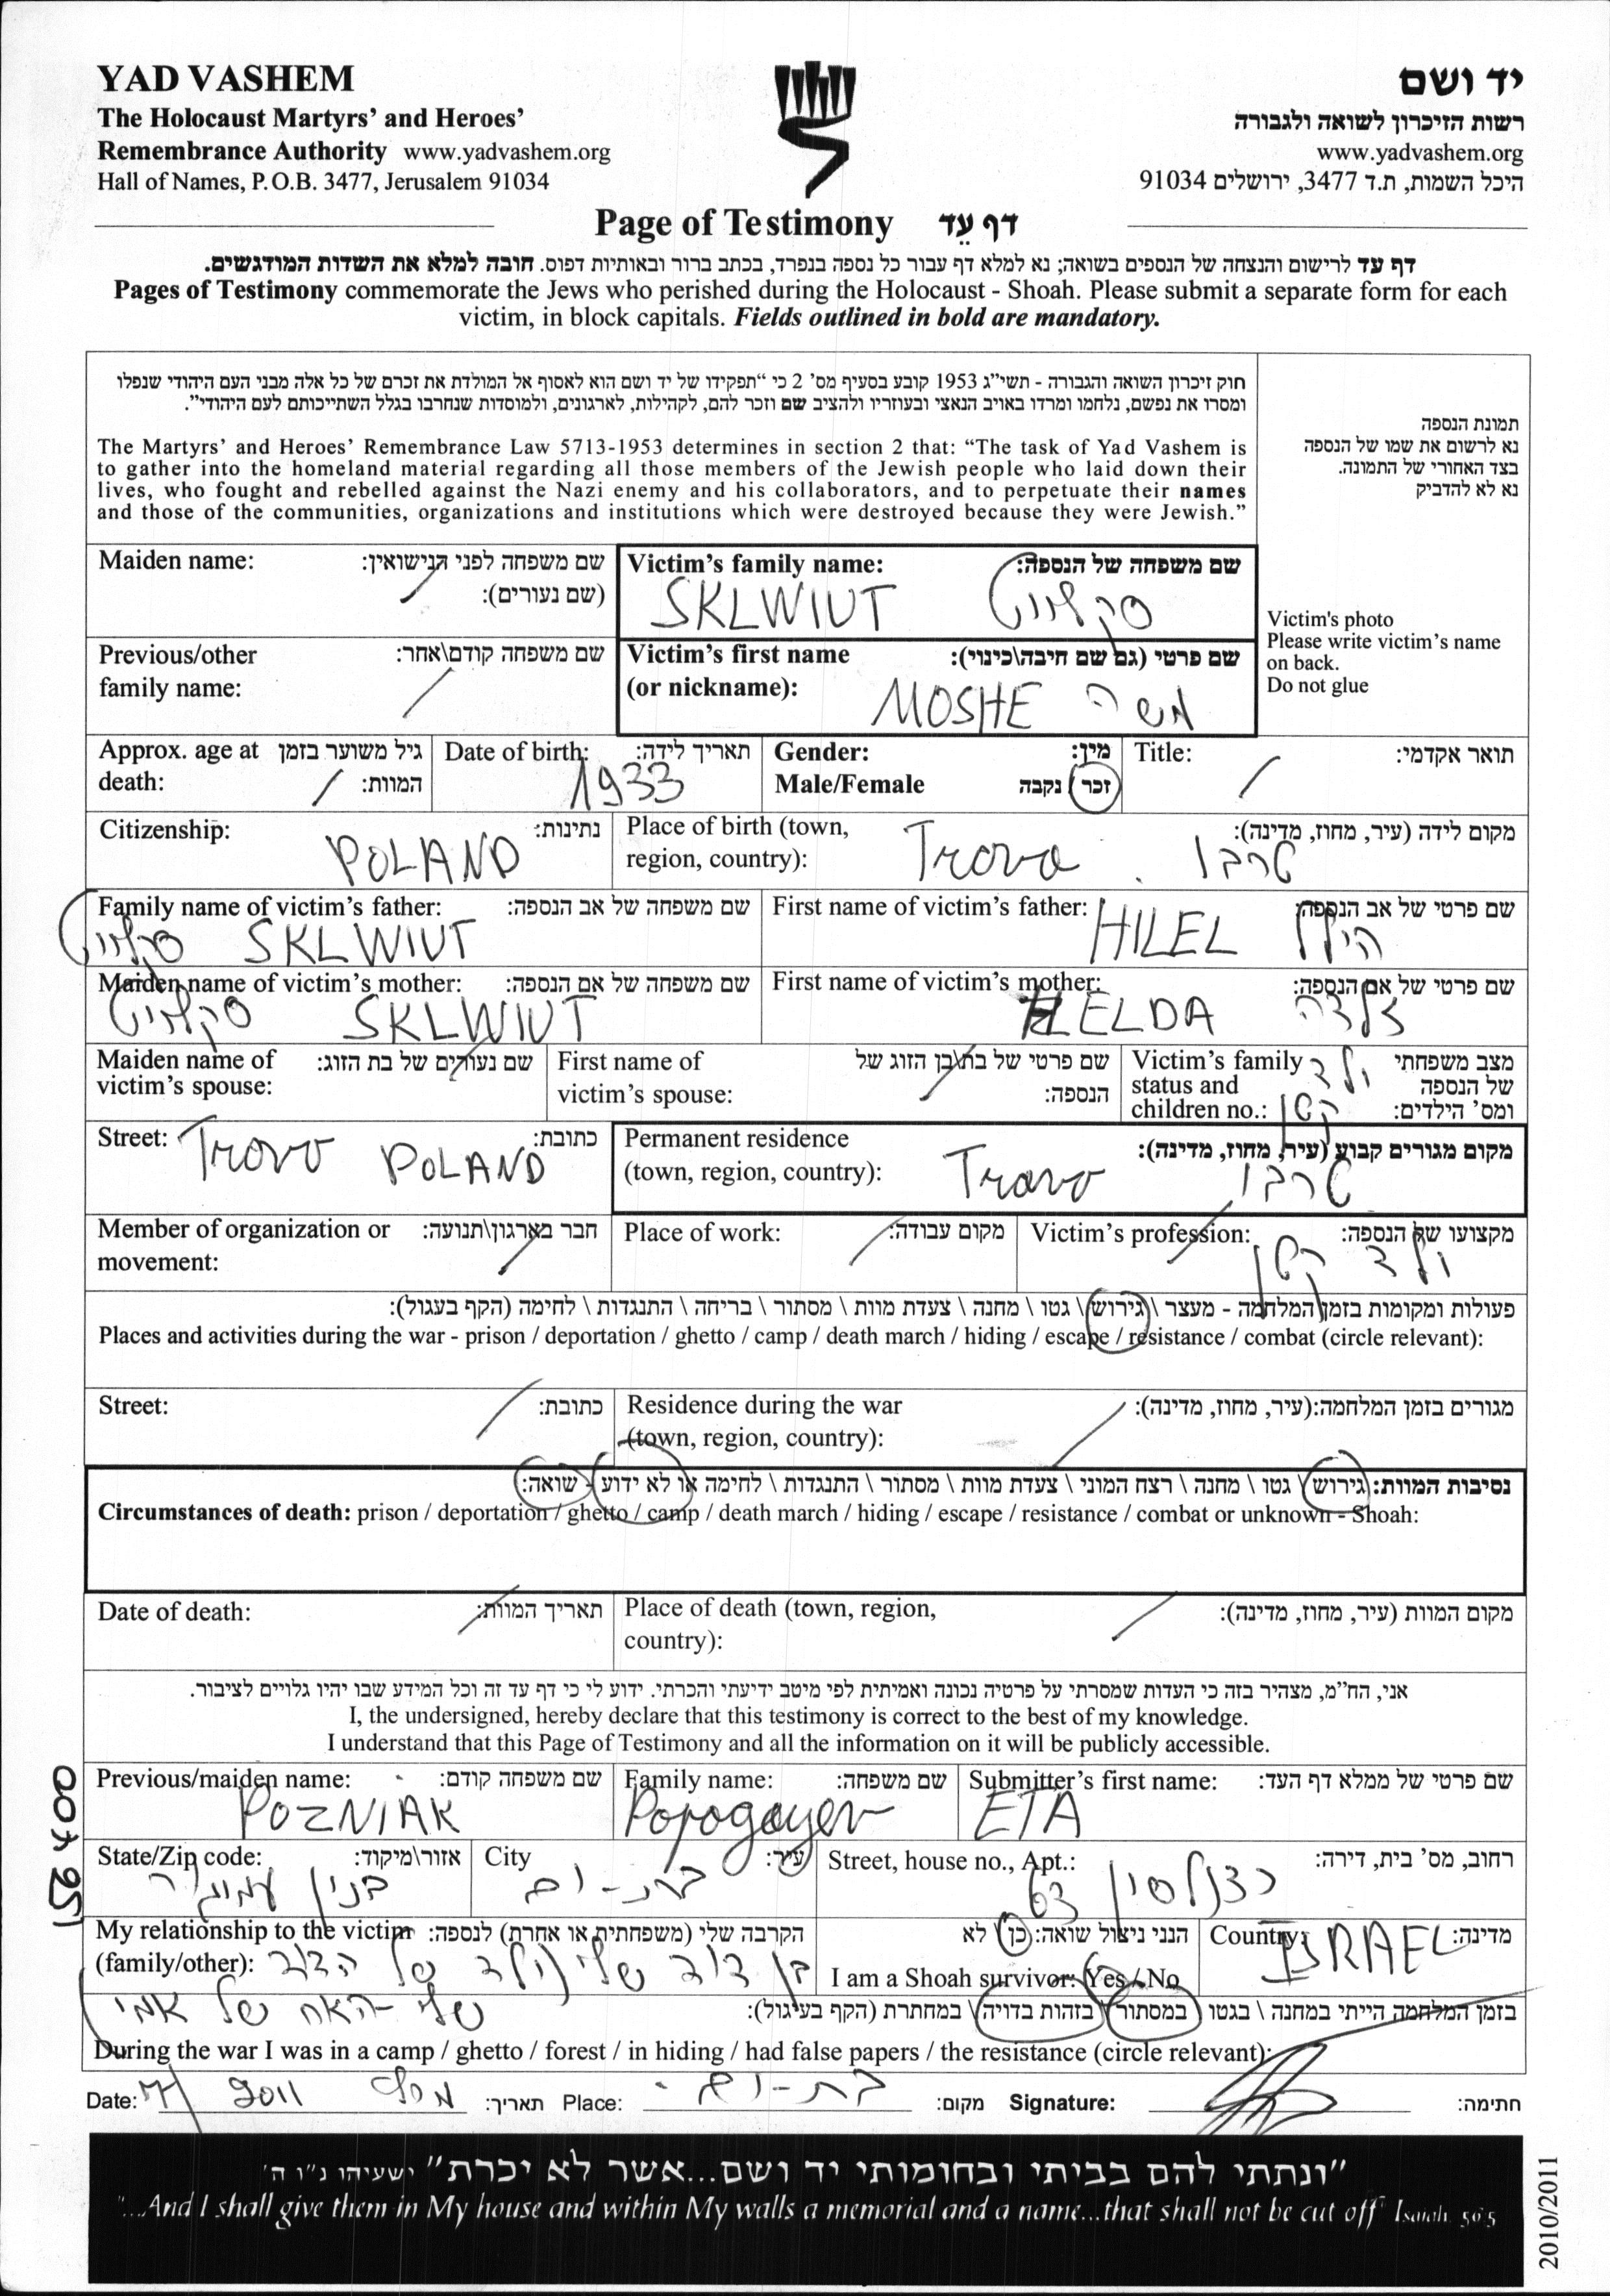 YAD VASHEM
The Holocaust Martyrs' and Heroes'
Remembrance Authority www.yadvashem.org
Hall of Names, P.O.B. 3477, Jerusalem 91034
יד ושם
רשות הזיכרון לשואה ולגבורה
www.yadvashem.org
היכל השמות, ת.ד 3477, ירושלים 91034
Page of Testimony דף עֵד
דף עד לרישום והנצחה של הנספים בשואה; נא למלא דף עבור כל נספה בנפרד, בכתב ברור ובאותיות דפוס. חובה למלא את השדות המודגשים.
Pages of Testimony commemorate the Jews who perished during the Holocaust - Shoah. Please submit a separate form for each
victim, in block capitals. Fields outlined in bold are mandatory.
חוק זיכרון השואה והגבורה - תשי"ג 1953 קובע בסעיף מס' 2 כי "תפקידו של יד ושם הוא לאסוף אל המולדת את זכרם של כל אלה מבני העם היהודי שנפלו
ומסרו את נפשם, נלחמו ומרדו באויב הנאצי ובעוזריו ולהציב שם וזכר להם, לקהילות, לארגונים, ולמוסדות שנחרבו בגלל השתייכותם לעם היהודי".
The Martyrs' and Heroes' Remembrance Law 5713-1953 determines in section 2 that: "The task of Yad Vashem is
to gather into the homeland material regarding all those members of the Jewish people who laid down their
lives, who fought and rebelled against the Nazi enemy and his collaborators, and to perpetuate their names
and those of the communities, organizations and institutions which were destroyed because they were Jewish."
תמונת הנספה
נא לרשום את שמו של הנספה
בצד האחורי של התמונה.
נא לא להדביק
Victim's photo
Please write victim's name
on back.
Do not glue
Maiden name: שם משפחה לפני הנישואין:
(שם נעורים):
Victim's family name: שם משפחה של הנספה:
SKLWIUT סקלויוט
Previous/other שם משפחה קודם\אחר:
family name:
Victim's first name שם פרטי (גם שם חיבה\כינוי):
(or nickname): MOSHE משה
Approx. age at גיל משוער בזמן
death: המוות:
Date of birth: תאריך לידה:
1933
Gender: מין:
Male/Female זכר / נקבה
Title: תואר אקדמי:
Citizenship: נתינות:
POLAND
Place of birth (town, מקום לידה (עיר, מחוז, מדינה):
region, country): Trova טרבו
Family name of victim's father: שם משפחה של אב הנספה:
SKLWIUT סקלויוט
First name of victim's father: שם פרטי של אב הנספה:
HILEL הילל
Maiden name of victim's mother: שם משפחה של אם הנספה:
SKLWIUT סקלויוט
First name of victim's mother: שם פרטי של אם הנספה:
ZELDA זלדה
Maiden name of שם נעורים של בת הזוג:
victim's spouse:
First name of שם פרטי של בת\בן הזוג של
victim's spouse: הנספה:
Victim's family מצב משפחתי
status and של הנספה
children no.: ומס' הילדים:
ילד
קטן
Street: כתובת:
Trovo POLAND
Permanent residence מקום מגורים קבוע (עיר, מחוז, מדינה):
(town, region, country): Trovo טרבו
Member of organization or חבר בארגון\תנועה:
movement:
Place of work: מקום עבודה:
Victim's profession: מקצועו של הנספה:
ילד קטן
פעולות ומקומות בזמן המלחמה - מעצר \ גירוש \ גטו \ מחנה \ צעדת מוות \ מסתור \ בריחה \ התנגדות \ לחימה (הקף בעגול):
Places and activities during the war - prison / deportation / ghetto / camp / death march / hiding / escape / resistance / combat (circle relevant):
Street: כתובת:
Residence during the war מגורים בזמן המלחמה:(עיר, מחוז, מדינה):
(town, region, country):
נסיבות המוות: גירוש \ גטו \ מחנה \ רצח המוני \ צעדת מוות \ מסתור \ התנגדות \ לחימה או לא ידוע - שואה:
Circumstances of death: prison / deportation / ghetto / camp / death march / hiding / escape / resistance / combat or unknown - Shoah:
Date of death: תאריך המוות:
Place of death (town, region, מקום המוות (עיר, מחוז, מדינה):
country):
אני, הח"מ, מצהיר בזה כי העדות שמסרתי על פרטיה נכונה ואמיתית לפי מיטב ידיעתי והכרתי. ידוע לי כי דף עד זה וכל המידע שבו יהיו גלויים לציבור.
I, the undersigned, hereby declare that this testimony is correct to the best of my knowledge.
I understand that this Page of Testimony and all the information on it will be publicly accessible.
Previous/maiden name: שם משפחה קודם:
POZNIAK
Family name: שם משפחה:
Submitter's first name: שם פרטי של ממלא דף העד:
ETA
State/Zip code: אזור\מיקוד:
בנין
City עיר:
בת-ים
Street, house no., Apt.: רחוב, מס' בית, דירה:
כצנלסון 63
My relationship to the victim הקרבה שלי (משפחתית או אחרת) לנספה:
(family/other): בן דוד שלי (ילד של הדוד
שלי-האח של אמי
הנני ניצול שואה: כן \ לא
I am a Shoah survivor: Yes / No
Country: מדינה:
ISRAEL
בזמן המלחמה הייתי במחנה \ בגטו \ במסתור \ בזהות בדויה \ במחתרת (הקף בעיגול):
During the war I was in a camp / ghetto / forest / in hiding / had false papers / the resistance (circle relevant):
Date: 2011 תאריך: Place: בת-ים מקום: Signature: חתימה:
"ונתתי להם בביתי ובחומותי יד ושם...אשר לא יכרת" ישעיהו נ"ו ה'
"...And I shall give them in My house and within My walls a memorial and a name...that shall not be cut off" Isaiah 56:5
2010/2011